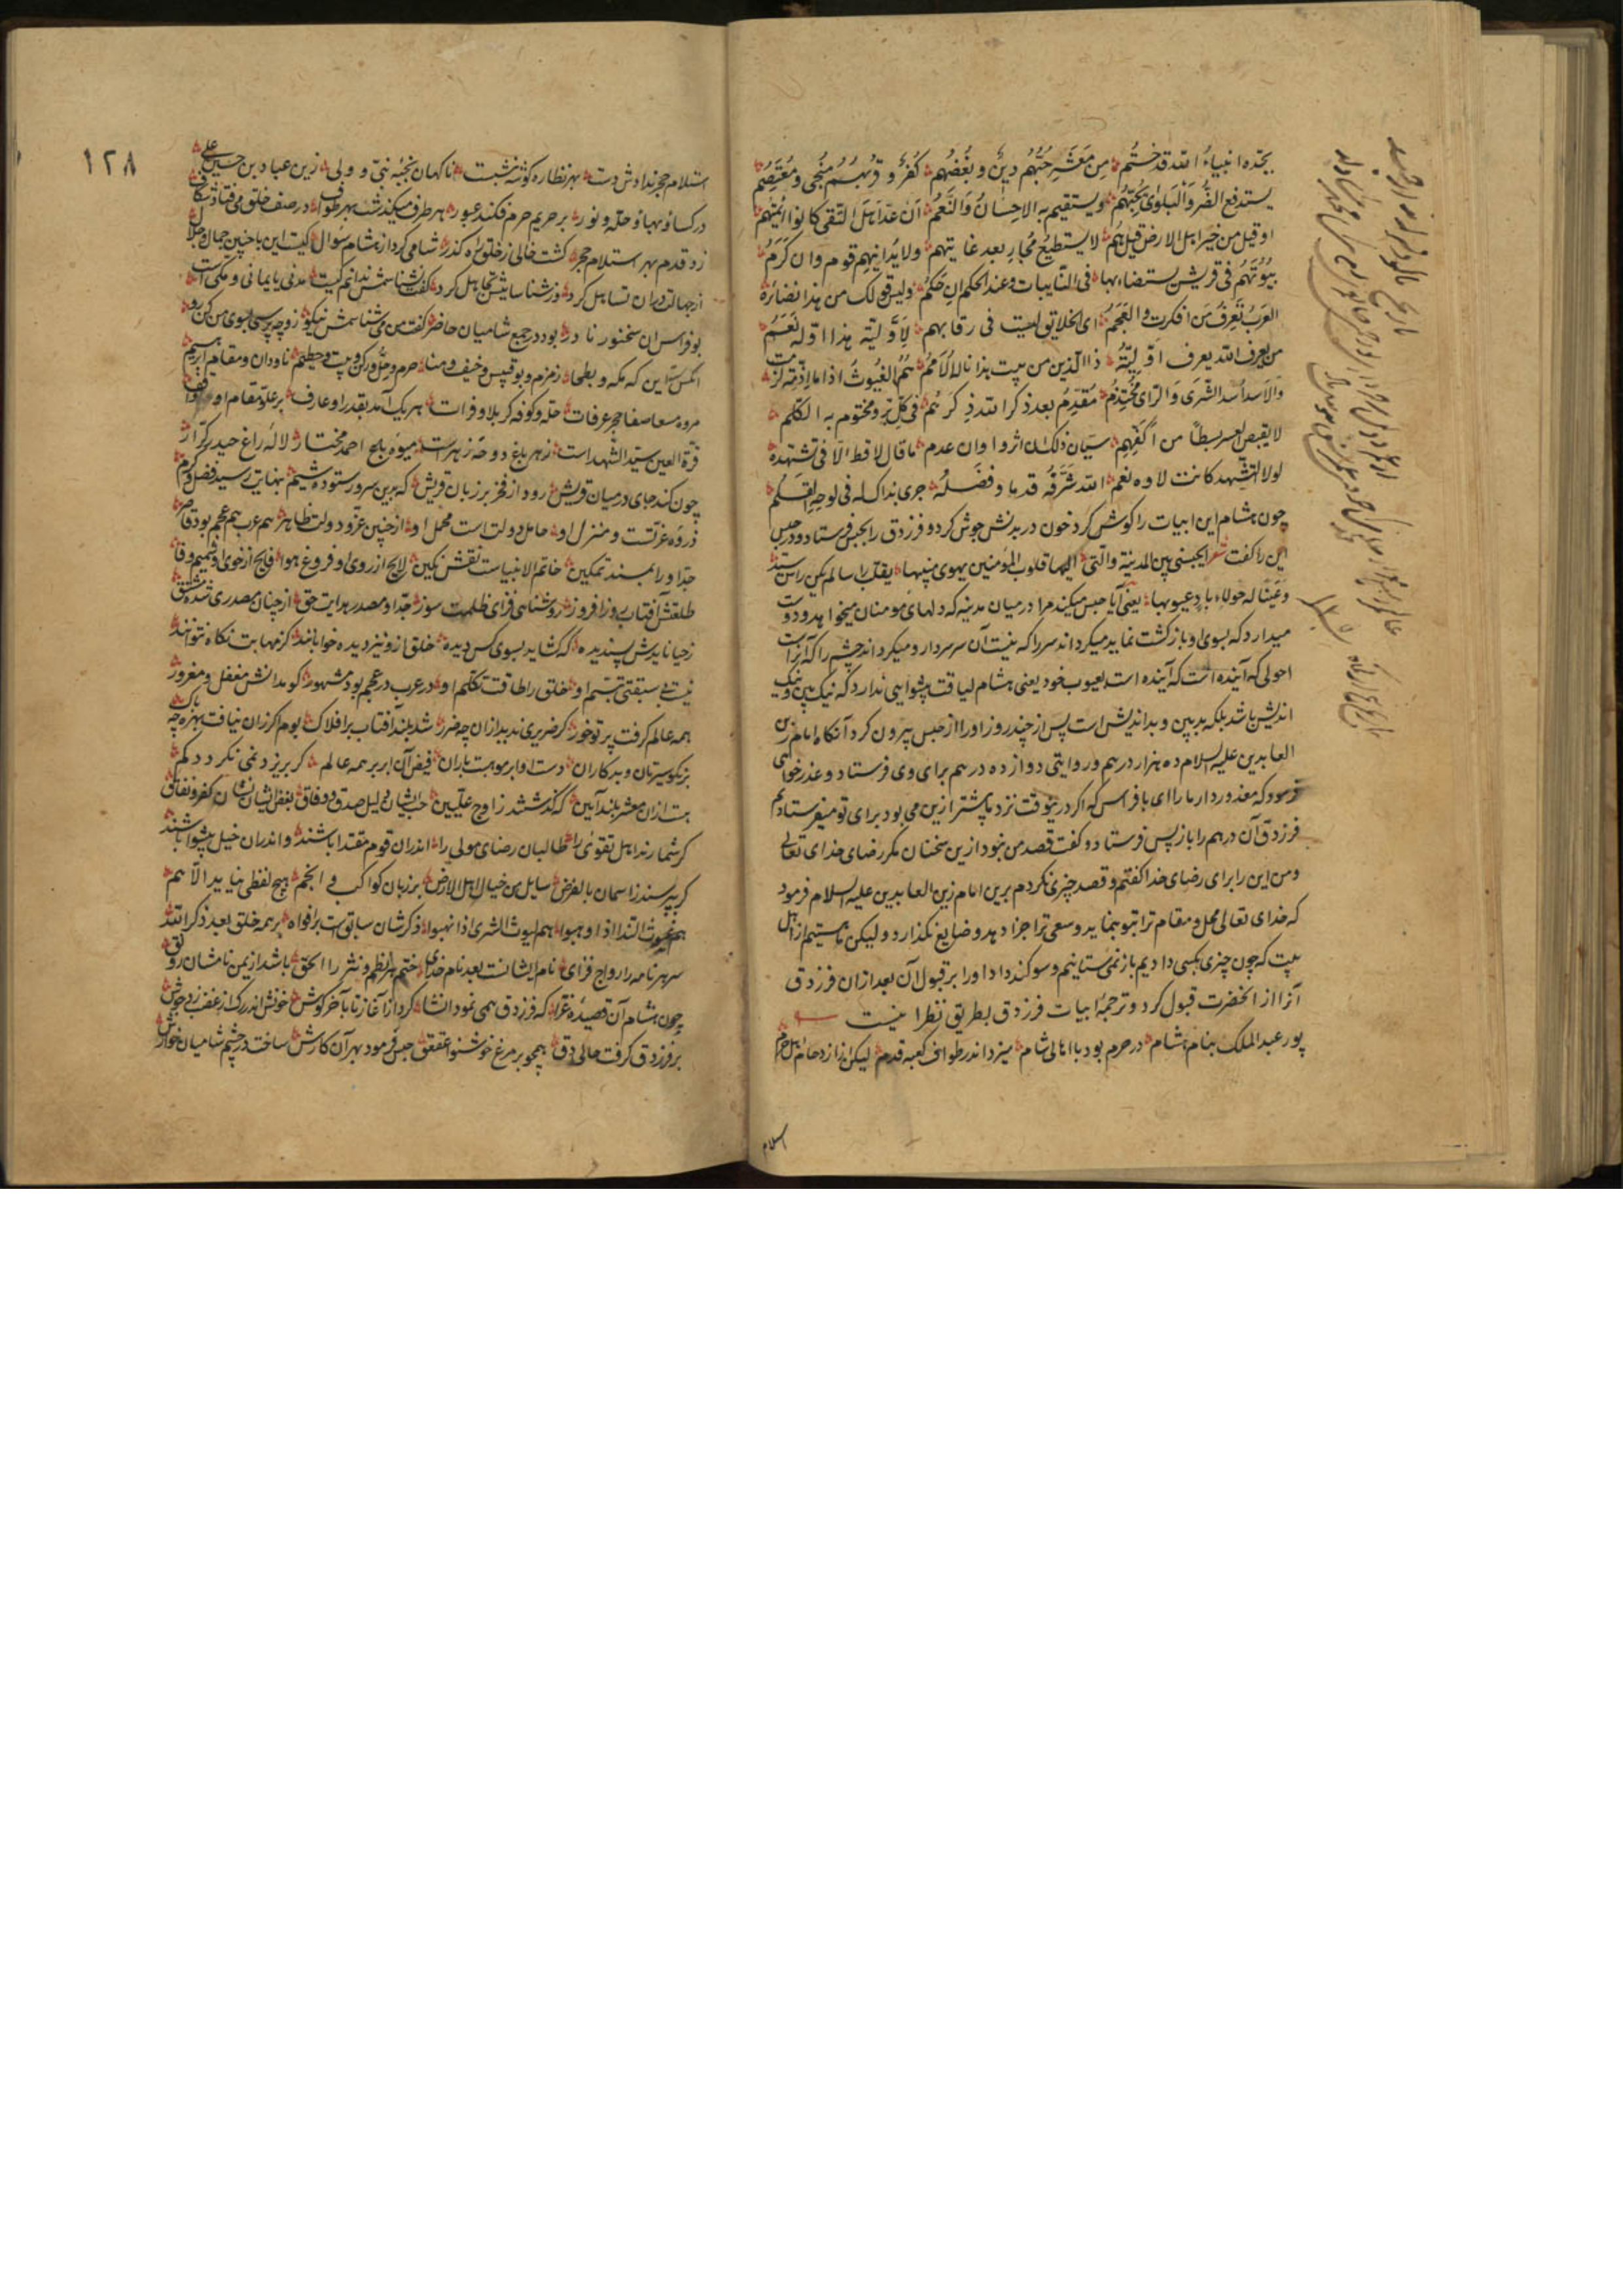 بجده انبیاء الله قد ختم من معشر حبهم دین و بغضهم کفر و قربهم منجی و معتصم
یستدفع الضر والبلوی بحبهم و یستقیم به الاحسان والنعم ان عد اهل التقی کانوا ائمتهم
او قیل من خیر اهل الارض قیل هم لا یستطیع مجار بعد غایتهم ولا یدانیهم قوم وان کرم
بیوتهم فی قریش یستضاء بها فی النایبات وعند الحکم ان حکم ولیس قولک من هذا بضائره
العرب تعرف من انکرت والعجم ای الخلایق لیست فی رقابهم لاولیة هذا اوله نعم
من یعرف الله یعرف اولیته ذا الدین من بیت هذا ناله الامم هم الغیوث اذا ما ازمة لزمت
والاسد اسد الشری والرای محتدم مقدم بعد ذکر الله ذکرهم فی کل بر ومختوم به الکلم
لا یقبض العسر بسطا من اکفهم سیان ذلک ان اثروا وان عدم ما قال لا قط الا فی تشهده
لولا التشهد کانت لاوه نعم الله شرفه قدما و فضله جری بذاک له فی لوحه القلم
چون هشام این ابیات را کوش کرد خون در بدنش جوش کرد و فرزدق را بحبس فرستاد و در حبس
این را کفت شعر ایحبسنی بین المدینة والتی الیها قلوب المؤمنین یهوی منیبها یقلب راسا لم یکن راس سید
وعینا له حولاء باد عیوبها یعنی آیا حبس میکند مرا در میان مدینه که دلهای مومنان میخواهد و دوست
میدارد که بسوی او باز کشت نماید میکرداند سر را که نیست آن سر سردار و میکرداند چشم را که آنرا
احولی که آینده است که آینده است بعیوب خود یعنی هشام لیاقت پیشوایی ندارد که نیک بین و نیک
اندیش باشد بلکه بد بین و بد اندیش است پس از چند روز او را از حبس بیرون کرد آنکاه امام زین
العابدین علیه السلام ده هزار درهم و روایتی دوازده درهم برای وی فرستاد و عذر خواهی
فرمود که معذور دار ما را ای بافراس که اکر درینوقت نزد ما پیشتر ازین می بود برای تو میفرستادم
فرزدق آن درهم را باز پس فرستاد و کفت قصد من نبود ازین سخنان مکر رضای خدای تعالی
ومن این را برای رضای خدا کفتم و قصد چیزی نکردم برین امام زین العابدین علیه السلام فرمود
که خدای تعالی محل و مقام ترا بتو بنماید و سعی ترا جزا دهد و ضایع نکذارد و لیکن ما هستیم از اهل
بیت که چون چیزی بکسی دادیم باز نمی ستانیم و سوکند داد او را بر قبول آن بعد ازان فرزدق
آنرا از انحضرت قبول کرد و ترجمه ابیات فرزدق بطریق نظم اینست
پور عبدالملک بنام هشام در حرم بود با اهالی شام میزد اندر طواف کعبه قدم لیکن از ازدحام اهل حرم
اسلام
۱۲۸
استلام حجر ندادش دست بهر نظاره کوشه بنشست ناکهان نخبه نبی و ولی زین عباد بن حسین علی
در کساء بها و حله نور بر حریم حرم فکند عبور هر طرف میکذشت بهر طواف در صف خلق می فتاد شکاف
زد قدم بهر استلام حجر کشت خالی ز خلق راه کذر شامی کرد از هشام سوال کیست این با چنین جمال و جلال
از جهالت دران تساهل کرد وز شناسائیش تجاهل کرد کفت نشناسمش ندانم کیست مدنی یا یمانی و مکی است
بو فراس ان سخنور نادر بود در جمع شامیان حاضر کفت من می شناسمش نیکو زو چه پرسی بسوی من کن رو
انکس ست این که مکه و بطحا زمزم و بو قبیس و خیف و منا حرم و حل و رکن و بیت و حطیم ناودان و مقام ابراهیم
مروه مسعا صفا حجر عرفات حله و کوفه کربلا و فرات هر یک آمد بقدر او عارف بر علو مقام او واقف
قرة العین سید الشهداست زهر باغ دوحه زهراست میوه باغ احمد مختار لاله راغ حیدر کرار
چون کند جای در میان قریش رود از فخر بر زبان قریش که بدین سرور ستوده شیم بنهایت رسید فضل و کرم
ذروه عزتست و منزل او حامل دولت است محمل او از چنین عز و دولت ظاهر هم عرب هم عجم بود قاصر
جد او را بمسند تمکین خاتم الانبیاست نقش نکین لایح از روی او فروغ هدا فایح از خوی او شمیم وفا
طلعتش آفتاب روز افروز روشنائی فزای ظلمت سوز جد او مصدر هدایت حق از چنان مصدری شده مشتق
ز حیا نایدش پسندیده که کشاید بسوی کس دیده خلق ازو نیز دیده خوابانند کز مهابت نکاه نتوانند
نیست بی سبقت تبسم او خلق را طاقت تکلم او در عرب در عجم بود مشهور کو مدانش مغفل و مغرور
همه عالم کرفت پرتو خور کر ضریری ندید ازان چه ضرر شد بلند آفتاب بر افلاک بوم اکر زان نیافت بهره چه باک
بر نکو سیرتان و بد کاران دست او ابر موهبت باران فیض آن ابر بر همه عالم کر بریزد نمی نکردد کم
هست ازان معشر بلند آیین که کذشتند ز اوج علیین حب ایشان دلیل صدق و وفاق بغض ایشان نشان کفر و نفاق
کر شمارند اهل تقوی را طالبان رضای مولی را اندران قوم مقتدا باشند واندران خیل پیشوا باشند
کر بپرسند ز اسمان بالفرض سایلی من خیار اهل الارض بر زبان کواکب و انجم هیچ لفظی نیاید الا هم
هم غیوث الندا اذا وهبوا هم لیوث الشری اذا نهبوا ذکرشان سابق است بر افواه بر همه خلق بعد ذکر الله
سر هر نامه را رواج فزای نام ایشانست بعد نام خدای ختم هر نظم و نثر را الحق باشد از یمن نامشان رونق
چون هشام آن قصیده غرا که فرزدق همی نمود انشا کرد از آغاز تا بآخر کوش خونش اندر رک از غضب زد جوش
بر فرزدق کرفت حالی دق همچو بر مرغ خوشنوا عقعق حبس فرمود بهر آن کارش ساخت در چشم شامیان خوارش